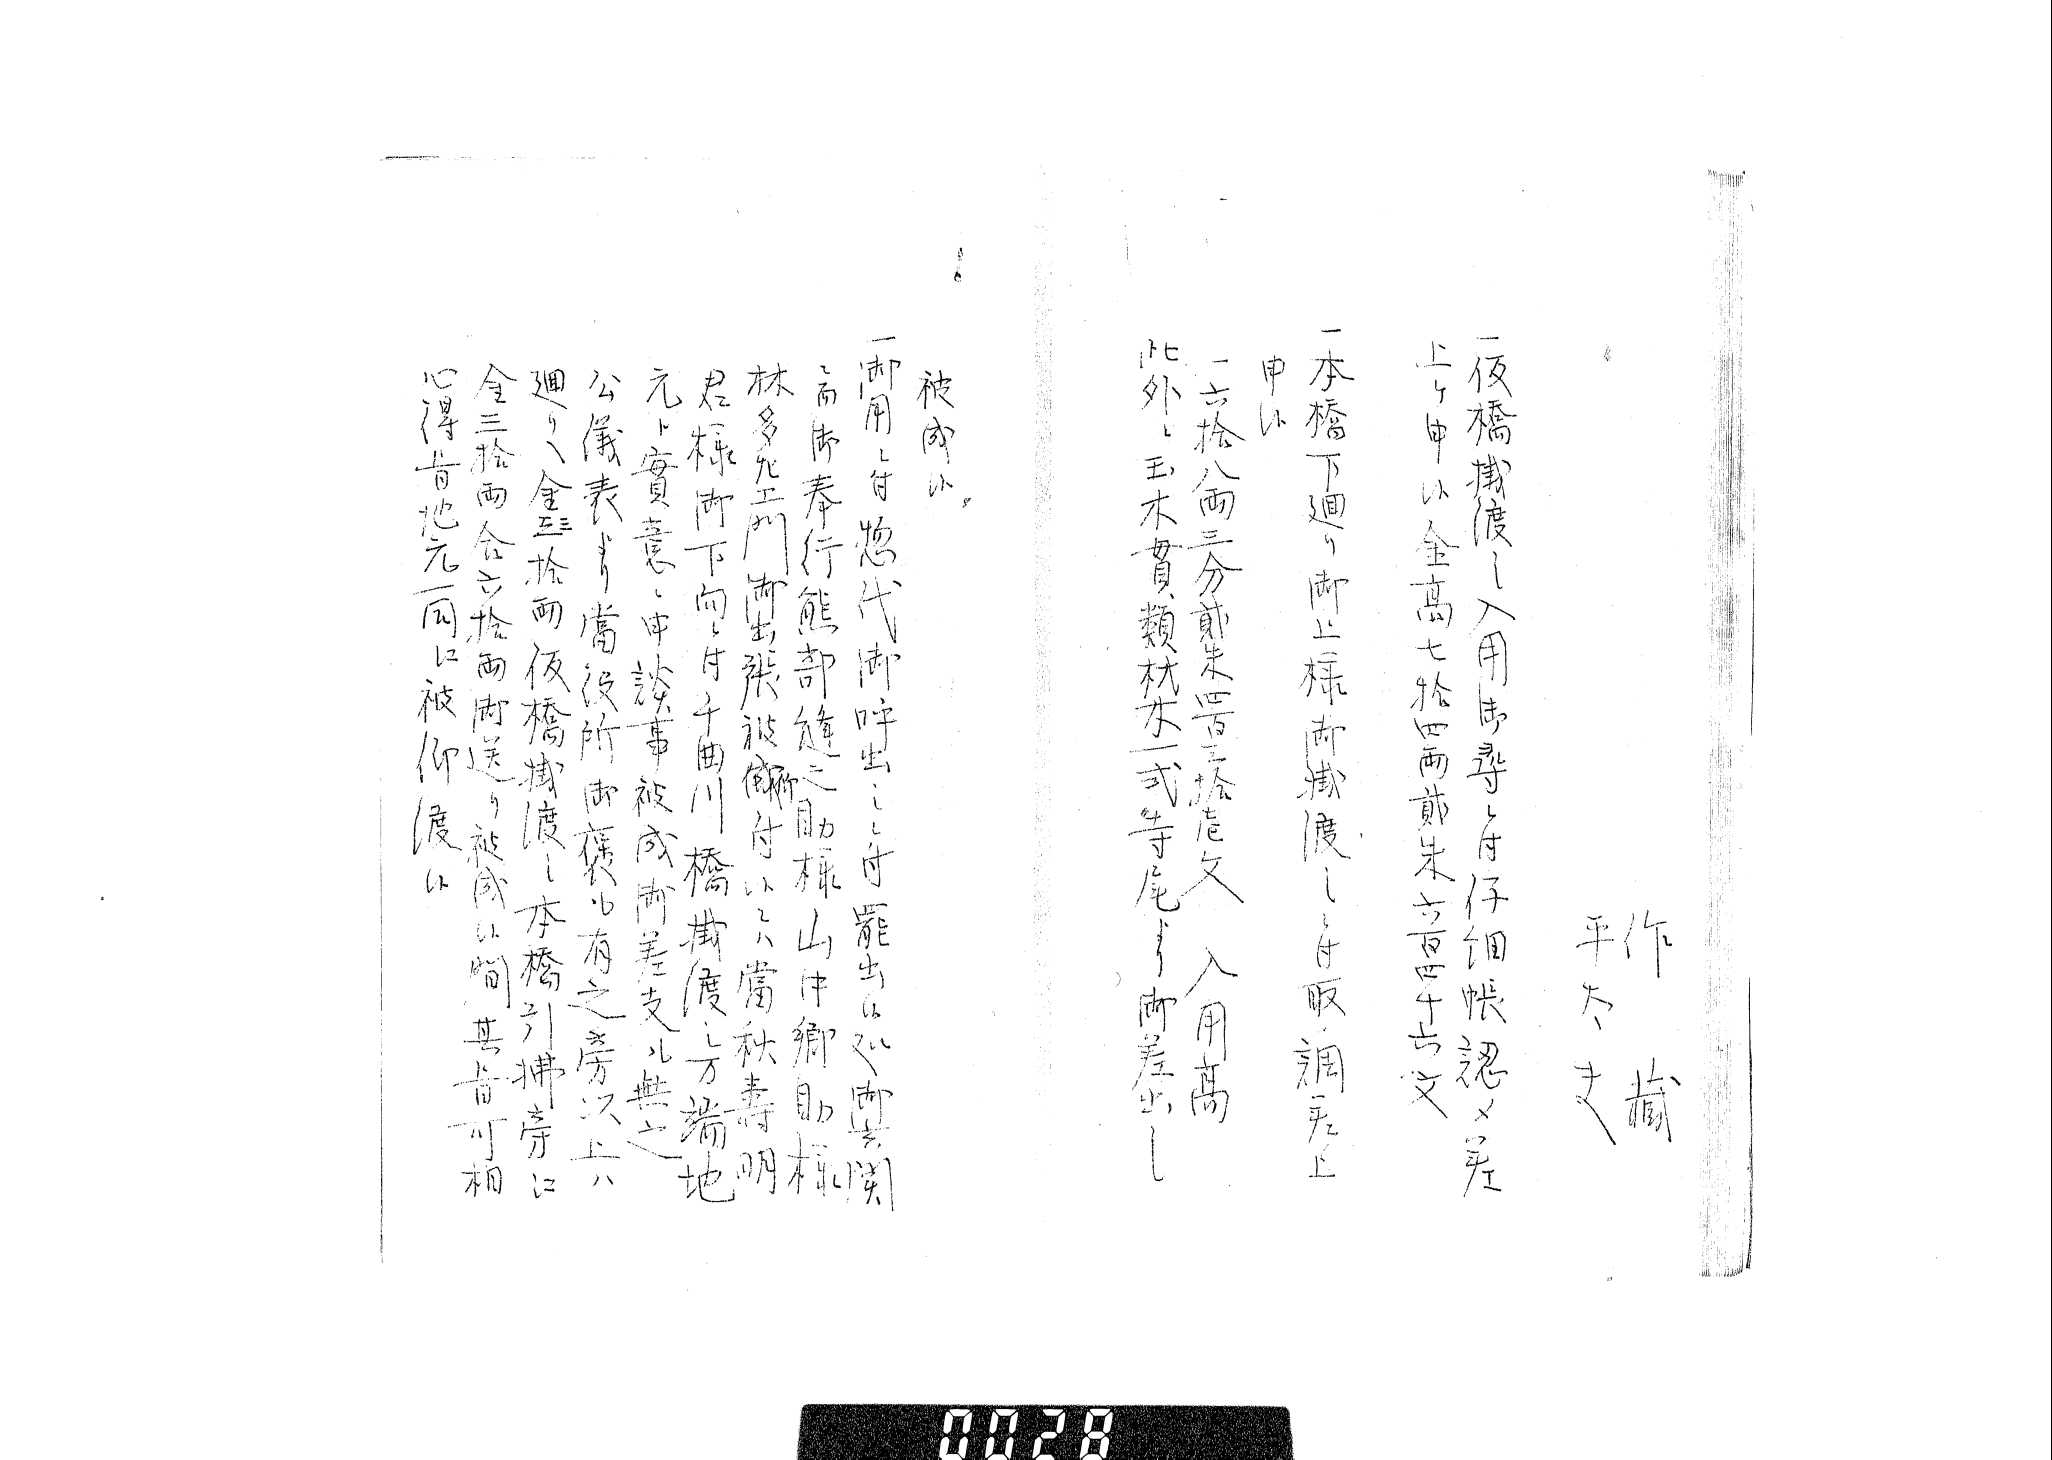 作藏
平太夫
一仮橋掛渡し入用御尋ニ付仔細帳認メ差
上ケ申候金高七拾四両貳朱六百四十六文
一本橋下廻り御上様御掛渡しニ付取調差上
申候
一六拾八両三分貳朱四百三拾壱文 入用高
此外ニ玉木貫類杭木一式寺尾より御差出し
被成候
一御用ニ付惣代御呼出しニ付罷出候処御玄関
ニ而御奉行熊部縫之助様山中郷助様
林多左エ門御出張被仰付候ニハ當秋壽明
君様御下向ニ付千曲川橋掛渡し方端地
元ト實意ニ申談事被成御差支ル無之
公儀表より當役所御褒ル有之旁次上ハ
廻り入金三拾両仮橋掛渡し本橋引拂旁に
金三拾両合六拾両御送り被成候間其旨可相
心得旨地元一同に被仰渡候
0028